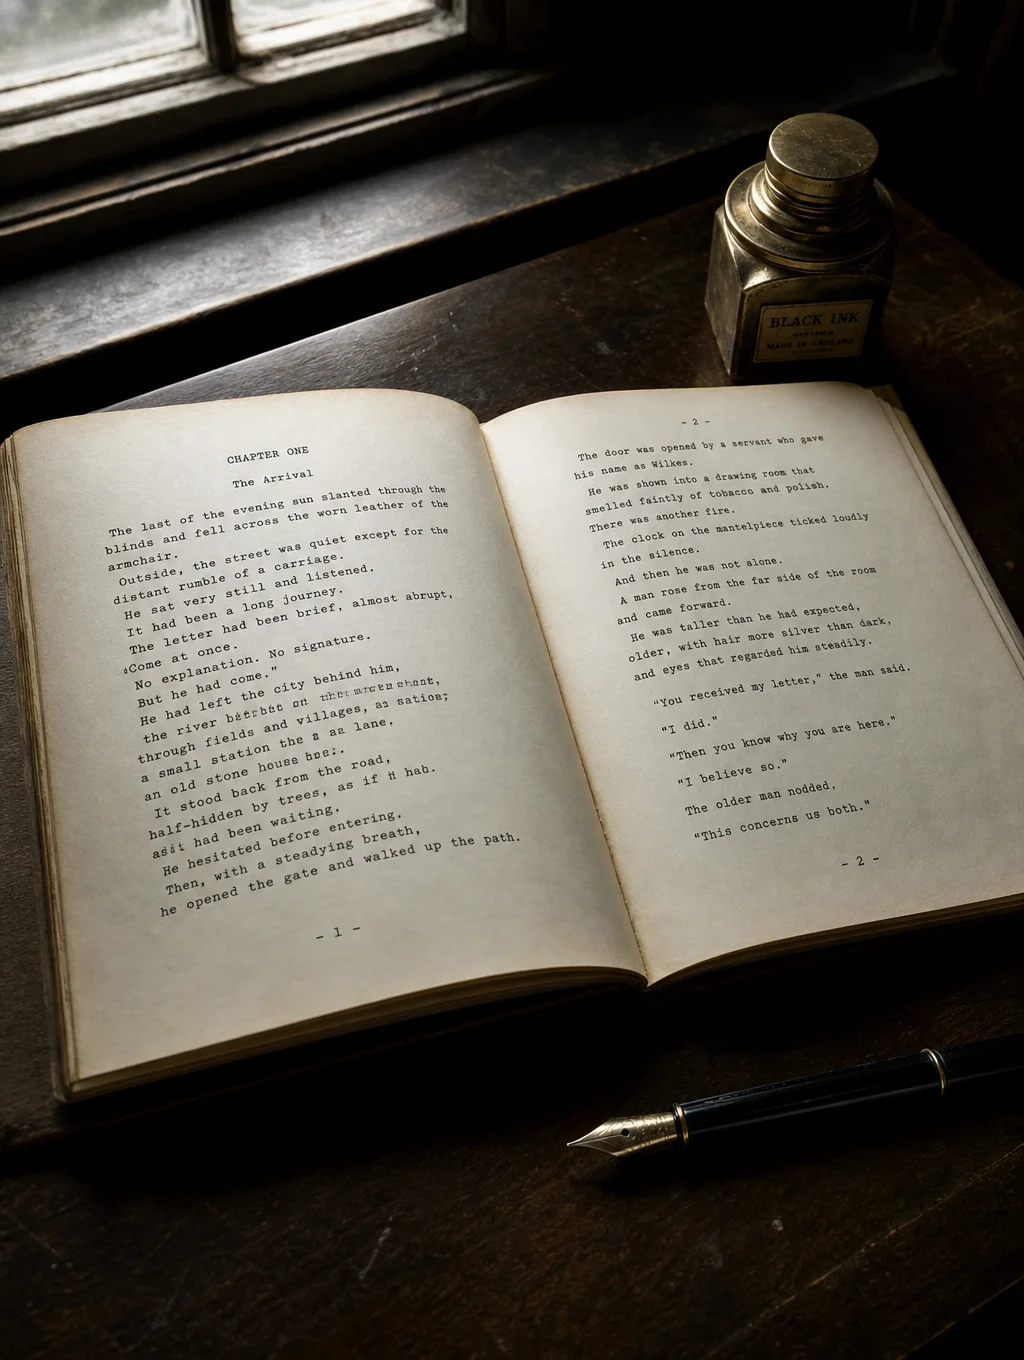 CHAPTER ONE
The Arrival
The last of the evening sun slanted through the
blinds and fell across the worn leather of the
armchair.
Outside, the street was quiet except for the
distant rumble of a carriage.
He sat very still and listened.
It had been a long journey.
The letter had been brief, almost abrupt,
Come at once.
No explanation. No signature.
But he had come."
He had left the city behind him,
the river on
through fields and villages, as
a small station the a lane,
an old stone house
It stood back from the road,
half-hidden by trees, as if
had been waiting.
He hesitated before entering.
Then, with a steadying breath,
he opened the gate and walked up the path.
- 1 -
- 2 -
The door was opened by a servant who gave
his name as Wilkes.
He was shown into a drawing room that
smelled faintly of tobacco and polish.
There was another fire.
The clock on the mantelpiece ticked loudly
in the silence.
And then he was not alone.
A man rose from the far side of the room
and came forward.
He was taller than he had expected,
older, with hair more silver than dark,
and eyes that regarded him steadily.
“You received my letter," the man said.
“I did."
“Then you know why you are here."
“I believe so."
The older man nodded,
“This concerns us both."
- 2 -
BLACK INK
MADE IN ENGLAND